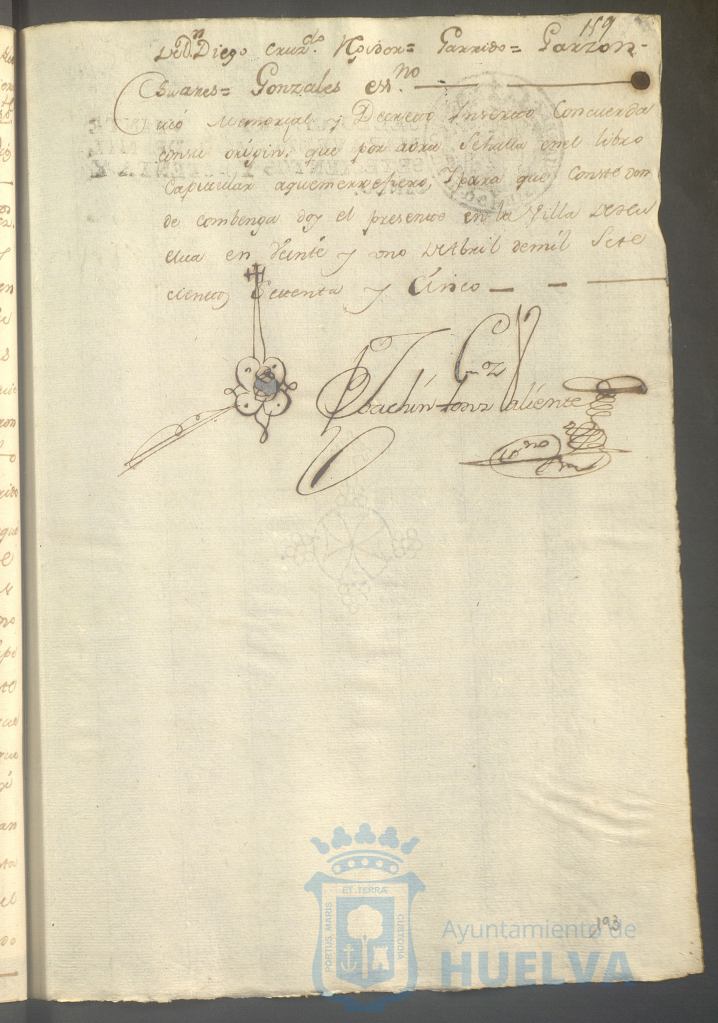 159
Dn Diego Cruz do Garrido = Garzon -
Suares = Gonzales essno
Memorial y Decreto Inserto Concuerda
con su origin. que por aora se halla en el libro
Capitular aque me refiero, Ypara que Conste don
de combenga doy el presente en la Villa de Hu
elva en Veinte y uno de Abril de mil Sete
cientos Setenta y Cinco
Joachin Gonz Valiente
193
PORTUS MARIS
ET TERRÆ
CUSTODIA
Ayuntamiento de
HUELVA